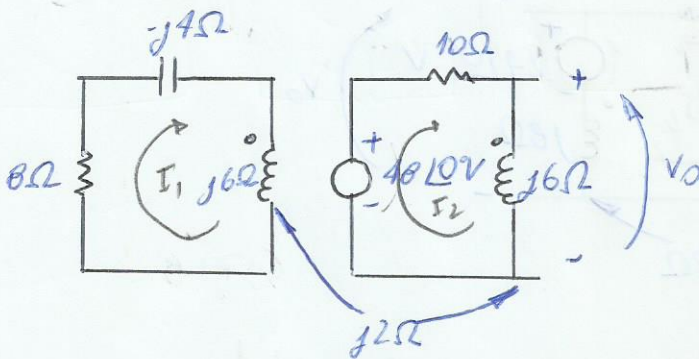 -j4Ω
10Ω
+
8Ω
I₁
j6Ω
+
48∠0V
-
I₂
j6Ω
V₀
-
j2Ω